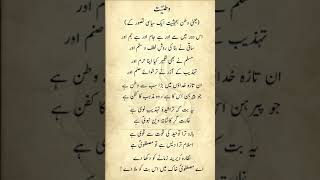 وطنیت
(یعنی وطن بحیثیت ایک سیاسی تصور کے)
اس دور میں مے اور ہے جام اور ہے جم اور
ساقی نے بنا کی روش لطف و ستم اور
مسلم نے بھی تعمیر کیا اپنا حرم اور
تہذیب کے آزر نے ترشوائے صنم اور
ان تازہ خداؤں میں بڑا سب سے وطن ہے
جو پیرہن اس کا ہے وہ مذہب کا کفن ہے
یہ بت کہ تراشیدۂ تہذیب نوی ہے
غارت گر کاشانۂ دین نبوی ہے
بازو ترا توحید کی قوت سے قوی ہے
اسلام ترا دیس ہے تو مصطفوی ہے
نظارۂ دیرینہ زمانے کو دکھا دے
اے مصطفوی خاک میں اس بت کو ملا دے!